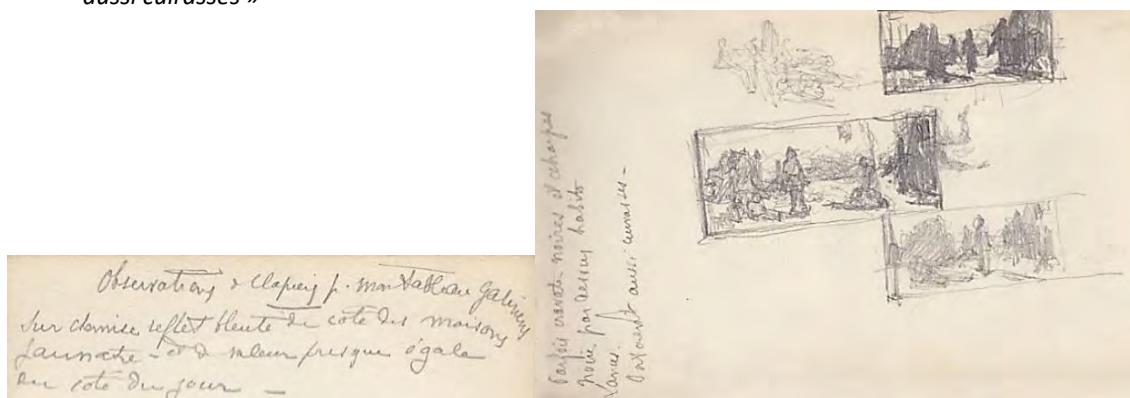 aussi cuirassés »
Observations à Clapiers p. mon tableau Galériens
Sur chemise reflet bleuté du coté des maisons
Jaunatre - et de valeur presque égale
au coté du jour -
Parfois cravates noires et écharpes
noires par dessus habits
Lances.
Portaient aussi cuirasses -